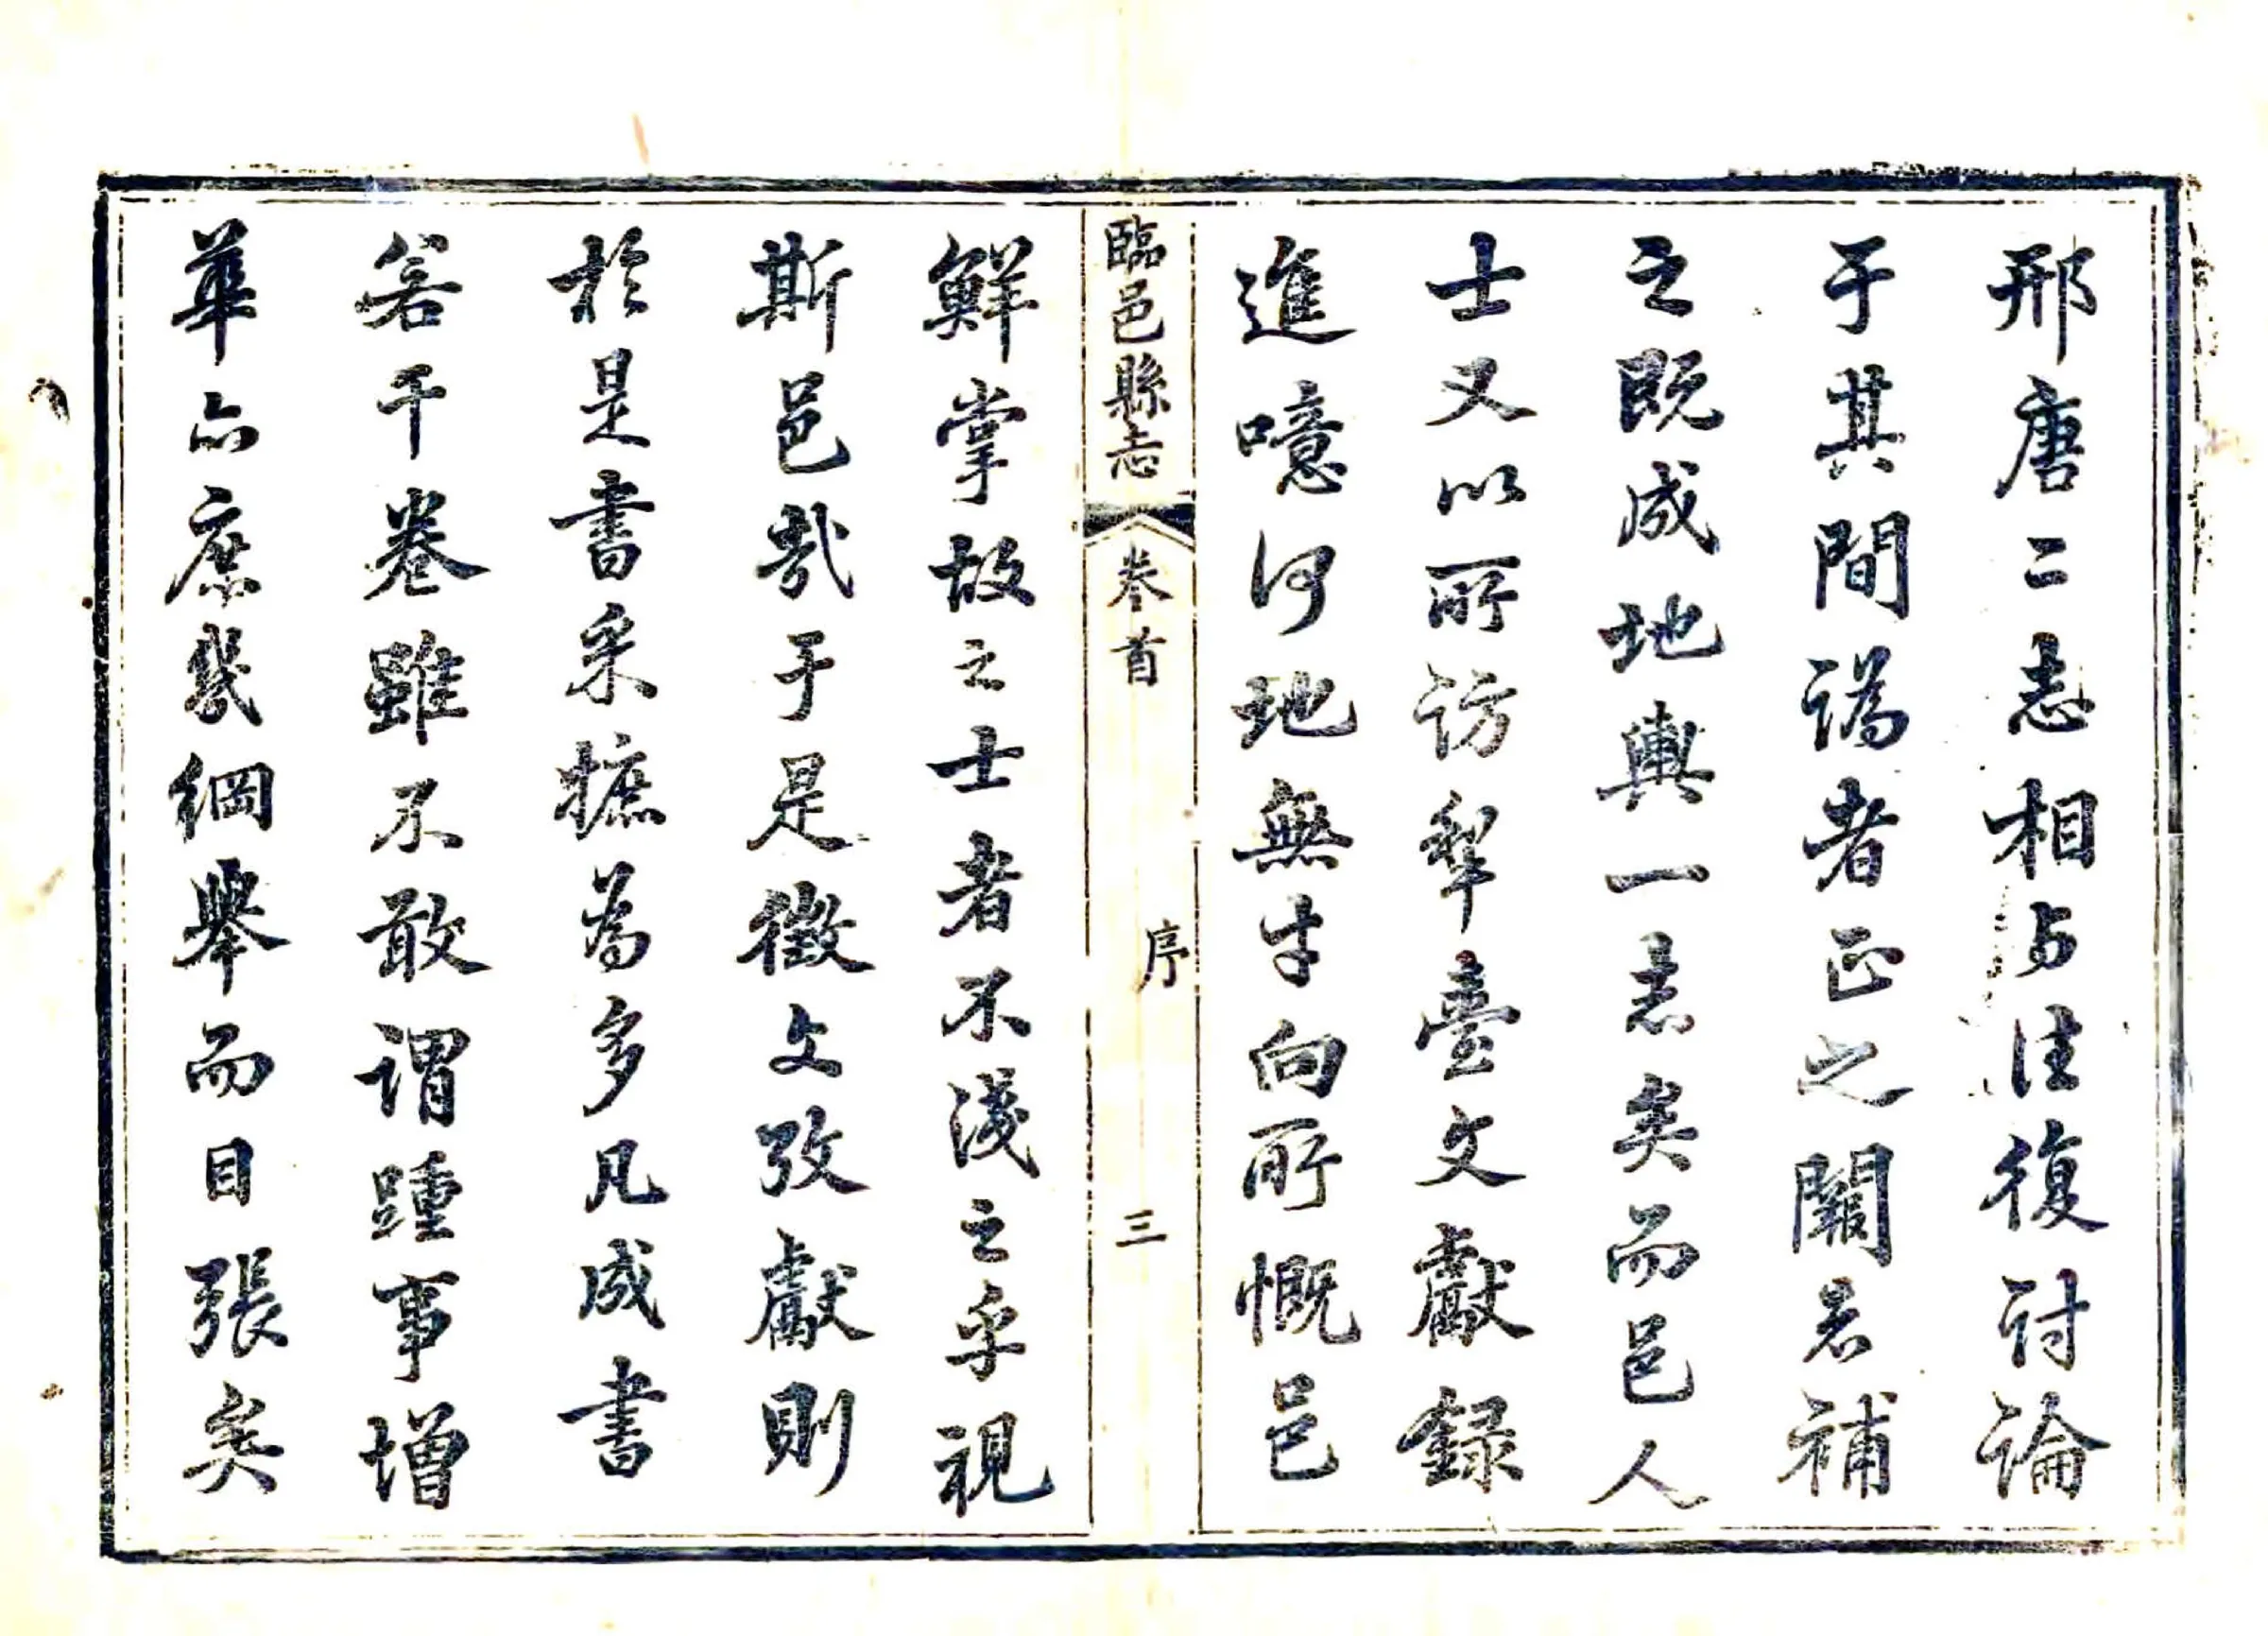 邢唐二志相与往復討論
于其間譌者正之闕者補
之既成地輿一志矣而邑人
士又以所訪犁臺文獻録
進噫何地無才向所慨邑
臨邑縣志
卷首
序
三
鮮掌故之士者不淺之乎視
斯邑哉于是徵文攷獻則
於是書采摭為多凡成書
若干卷雖不敢謂踵事增
華亦庶幾綱舉而目張矣